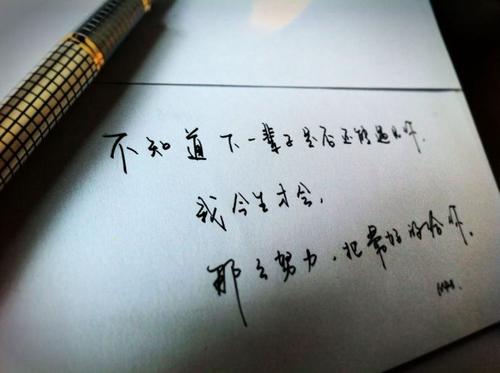 不知道下一辈子是否还能遇见你.
我今生才会,
那么努力.把最好的给你.